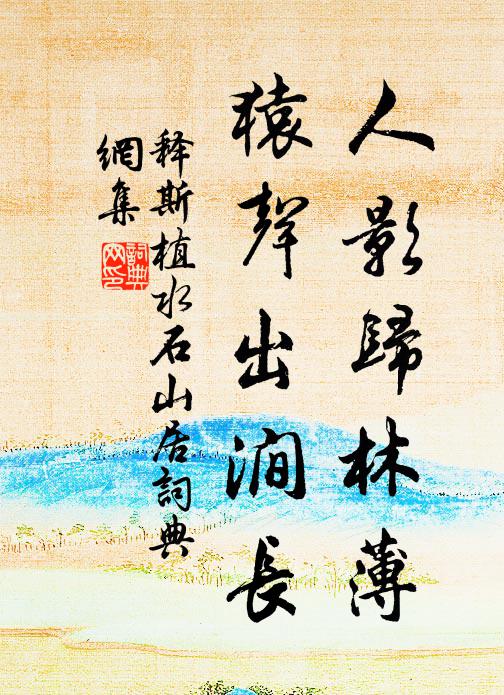 人影歸林薄
猿聲出澗長
释斯植水石山居詞典
網集
詞典
网印